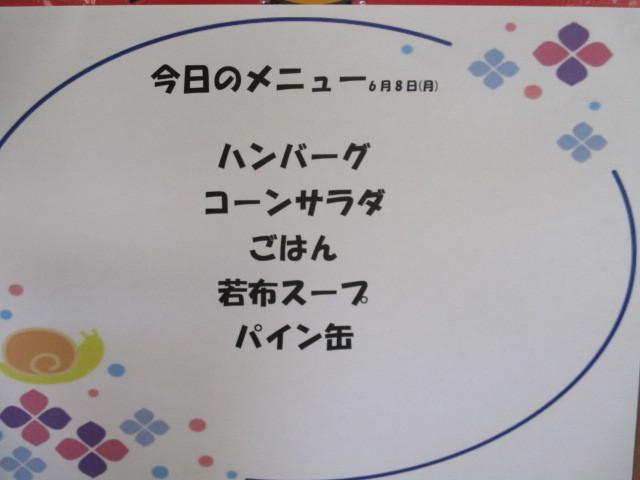 今日のメニュー 6月8日(月)
ハンバーグ
コーンサラダ
ごはん
若布スープ
パイン缶